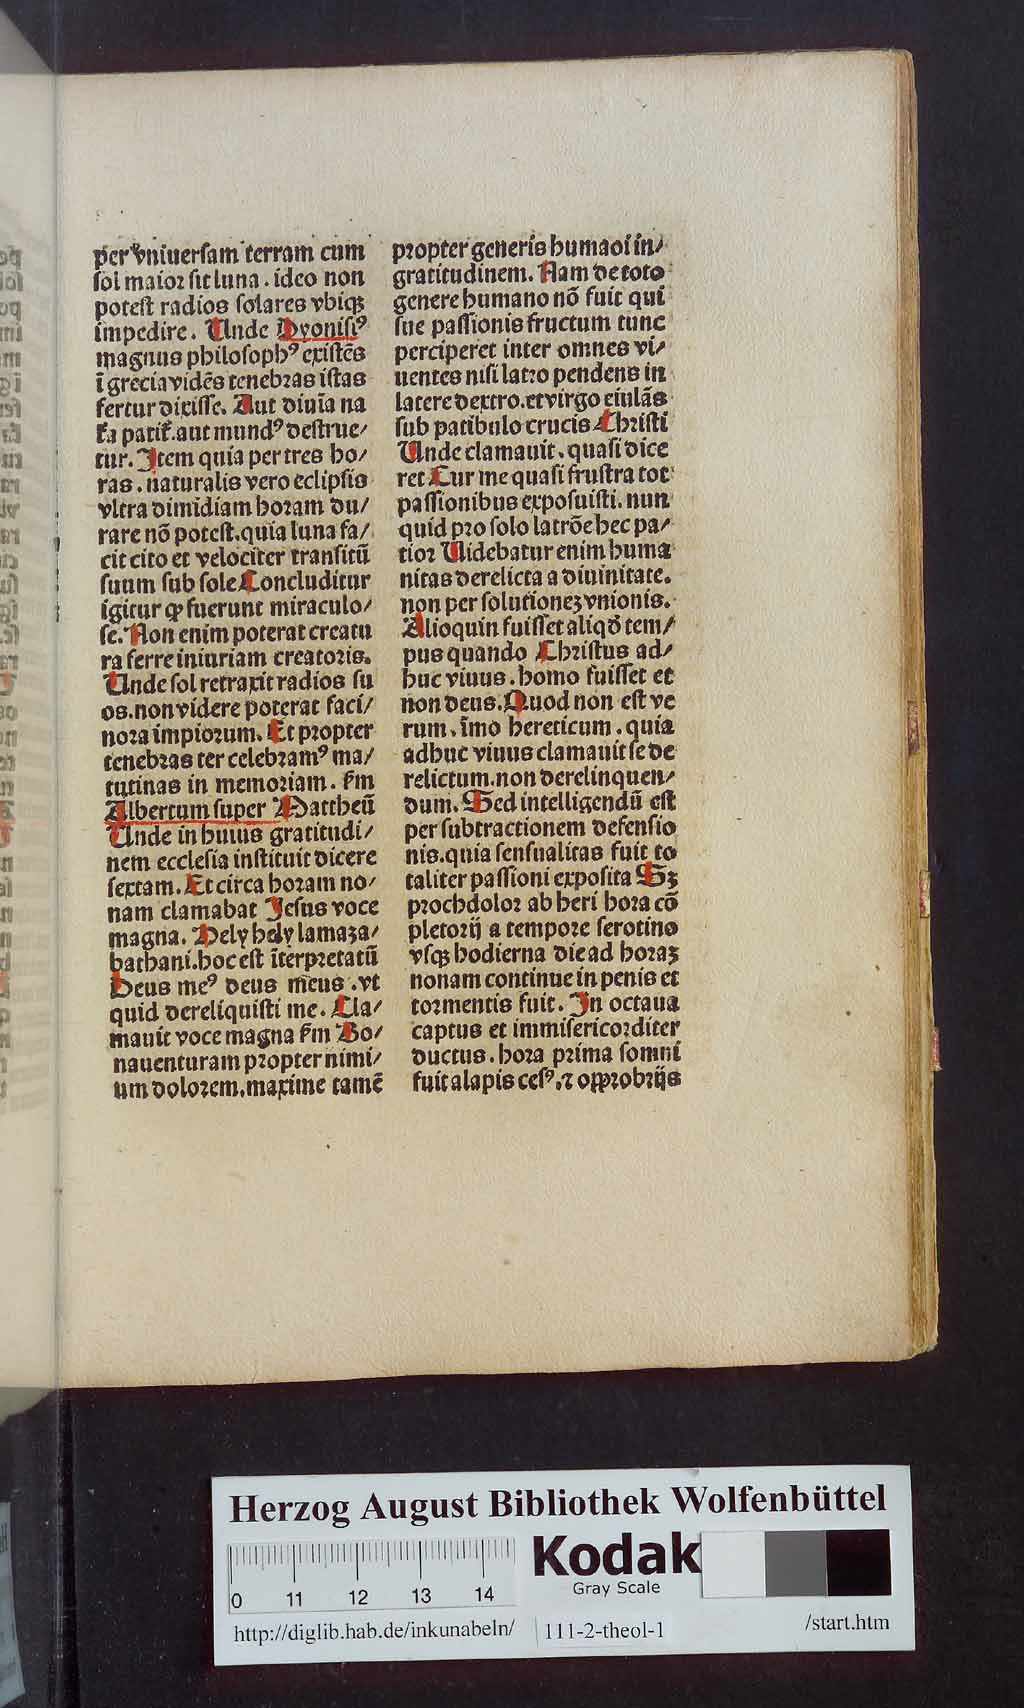 per vniuersam terram cum
sol maior sit luna. ideo non
potest radios solares vbiqꝫ
impedire. Unde Dyonisiꝰ
magnus philosophꝰ existēs
ī grecia vidēs tenebras istas
fertur dixisse. Aut diuīa na
tꝛ̄a patit̄. aut mundꝰ destrue/
tur. Item quia per tres ho/
ras. naturalis vero eclipsis
vltra dimidiam horam du/
rare nō potest. quia luna fa/
cit cito et velociter transitū
suum sub sole Concluditur
igitur ꝙ fuerunt miraculo/
se. Non enim poterat creatu
ra ferre iniuriam creatoris.
Unde sol retraxit radios su
os. non videre poterat faci/
nora impiorum. Et propter
tenebras ter celebramꝰ ma/
tutinas in memoriam. ẜm
Albertum super Mattheū
Unde in huius gratitudi/
nem ecclesia instituit dicere
sextam. Et circa horam no/
nam clamabat Jesus voce
magna. Hely hely lamaza/
bathani. hoc est īterpretatū
Deus meꝰ deus meus. vt
quid dereliquisti me. Cla/
mauit voce magna ẜm Bo/
nauenturam propter nimi/
um dolorem. maxime tamē
propter generis humaoi in/
gratitudinem. Nam de toto
genere humano nō fuit qui
sue passionis fructum tunc
perciperet inter omnes vi/
uentes nisi latro pendens in
latere dextro. et virgo eiulās
sub patibulo crucis Christi
Unde clamauit. quasi dice
ret Cur me quasi frustra tot
passionibus exposuisti. nun
quid pro solo latrōe hec pa/
tior Uidebatur enim huma
nitas derelicta a diuinitate.
non per solutioneꝫ vnionis.
Alioquin fuisset aliqđ tem/
pus quando Christus ad/
huc viuus. homo fuisset et
non deus. Quod non est ve
rum. īmo hereticum. quia
adhuc viuus clamauit se de
relictum. non derelinquen/
dum. Sed intelligendū est
per subtractionem defensio
nis. quia sensualitas fuit to
taliter passioni exposita Sꝫ
prochdolor ab heri hora cō
pletorij a tempore serotino
vsqꝫ hodierna die ad horaꝫ
nonam continue in penis et
tormentis fuit. In octaua
captus et immisericorditer
ductus. hora prima somni
fuit alapis cesꝰ. ⁊ opprobrijs
Herzog August Bibliothek Wolfenbüttel
0 11 12 13 14
Kodak
Gray Scale
http://diglib.hab.de/inkunabeln/ 111-2-theol-1 /start.htm